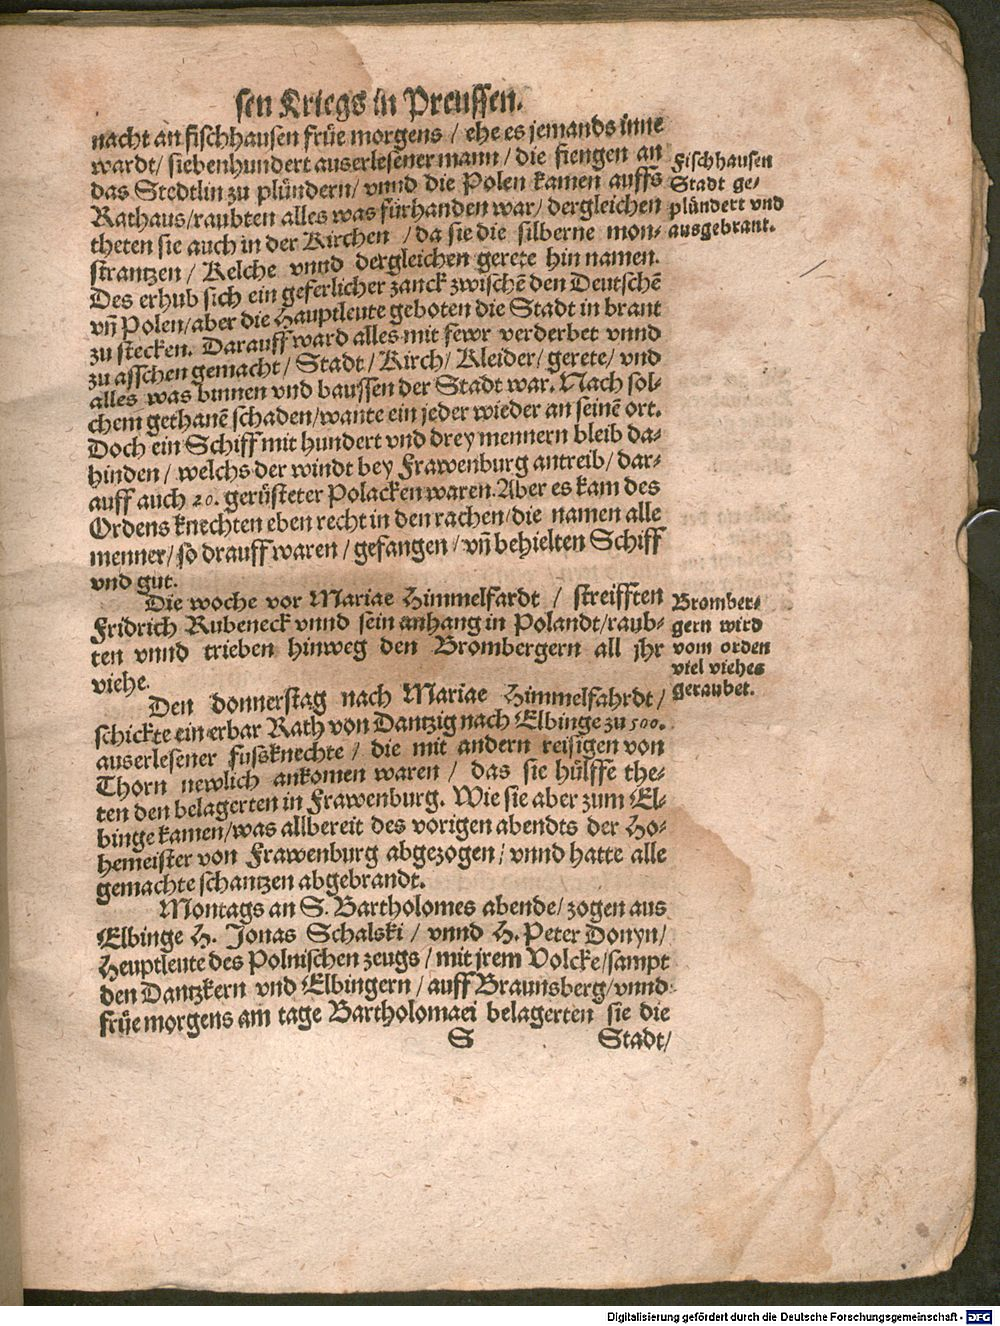 sen Kriegs in Preussen.
nacht an fischhausen früe morgens / ehe es jemands inne
wardt / siebenhundert auserlesener mann / die fiengen an
das Stedtlin zu plündern / vnnd die Polen kamen auffs
Rathaus / raubten alles was fürhanden war / dergleichen
theten sie auch in der Kirchen / da sie die silberne mon-
strantzen / Kelche vnnd dergleichen gerete hin namen.
Des erhub sich ein geferlicher zanck zwischē den Deutschē
vn̄ Polen / aber die Hauptleute geboten die Stadt in brant
zu stecken. Darauff ward alles mit fewr verderbet vnnd
zu asschen gemacht / Stadt / Kirch / Kleider / gerete / vnd
alles was binnen vnd baussen der Stadt war. Nach sol-
chem gethanē schaden / wante ein jeder wieder an seinē ort.
Doch ein Schiff mit hundert vnd drey mennern bleib da-
hinden / welchs der windt bey Frawenburg antreib / dar-
auff auch 20. gerüsteter Polacken waren. Aber es kam des
Ordens knechten eben recht in den rachen / die namen alle
menner / so drauff waren / gefangen / vn̄ behielten Schiff
vnd gut.
Fischhausen
Stadt ge-
plündert vnd
ausgebrant.
Die woche vor Mariae Himmelfardt / streifften
Fridrich Rubeneck vnnd sein anhang in Polandt / raub-
ten vnnd trieben hinweg den Brombergern all jhr
viehe.
Bromber-
gern wird
vom orden
viel viehes
geraubet.
Den donnerstag nach Mariae Himmelfahrdt /
schickte ein erbar Rath von Dantzig nach Elbinge zu 500.
auserlesener fussknechte / die mit andern reisigen von
Thorn newlich ankomen waren / das sie hülffe the-
ten den belagerten in Frawenburg. Wie sie aber zum El-
binge kamen / was allbereit des vorigen abendts der Ho-
hemeister von Frawenburg abgezogen / vnnd hatte alle
gemachte schantzen abgebrandt.
Montags an S. Bartholomes abende / zogen aus
Elbinge H. Jonas Schalski / vnnd H. Peter Donyn /
Heuptleute des Polnischen zeugs / mit jrem Volcke / sampt
den Dantzkern vnd Elbingern / auff Braunsberg / vnnd
früe morgens am tage Bartholomaei belagerten sie die
S Stadt /
Digitalisierung gefördert durch die Deutsche Forschungsgemeinschaft - DFG